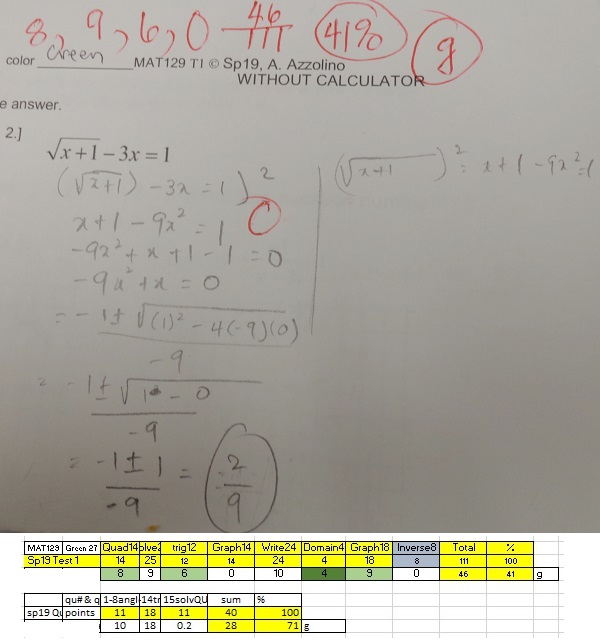 8, 9, 6, 0 46/111 41% g
color Green MAT129 T1 © Sp19, A. Azzolino
WITHOUT CALCULATOR
e answer.
2.]
√x+1 - 3x = 1
(√x+1) - 3x = 1)² (√x+1)² = x+1 - 9x² = 1
x+1 - 9x² = 1 0
-9x² + x + 1 - 1 = 0
-9x² + x = 0
= -1 ± √(1)² - 4(-9)(0)
-9
= -1 ± √1² - 0
-9
= -1 ± 1 / -9 = 2/9
MAT129 Green 27 Quad14 olve2 trig12 Graph14 Write24 Domain4 Graph18 Inverse8 Total %
Sp19 Test 1 14 25 12 14 24 4 18 8 111 100
8 9 6 0 10 4 9 0 46 41 g
qu# & q 1-8angl -14tr 15solvQU sum %
sp19 Qu points 11 18 11 40 100
10 18 0.2 28 71 g